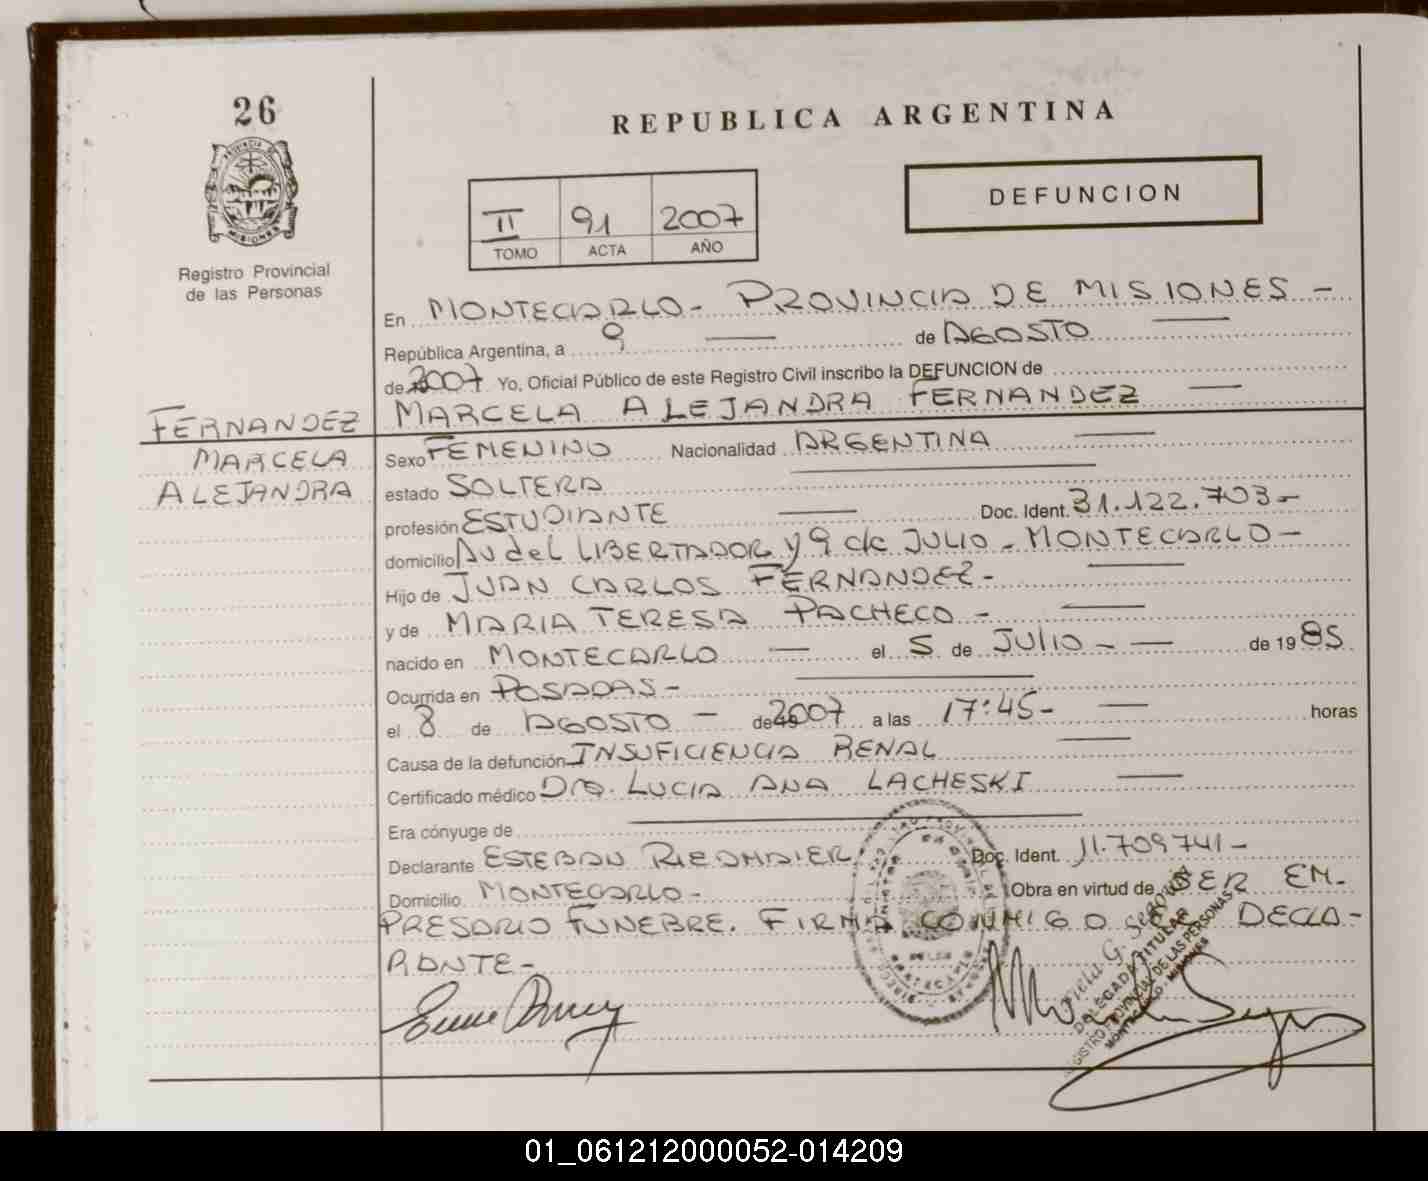 26
REPUBLICA ARGENTINA
DEFUNCION
II 91 2007
TOMO ACTA AÑO
PROVINCIA DE
MISIONES
Registro Provincial
de las Personas
En MONTECARLO - PROVINCIA DE MISIONES -
República Argentina, a 9 de AGOSTO
de 2007 Yo, Oficial Público de este Registro Civil inscribo la DEFUNCION de
MARCELA ALEJANDRA FERNANDEZ
FERNANDEZ
MARCELA
ALEJANDRA
Sexo FEMENINO Nacionalidad ARGENTINA
estado SOLTERA
profesión ESTUDIANTE Doc. Ident. 31.122.703-
domicilio AV del LIBERTADOR y 9 de JULIO - MONTECARLO -
Hijo de JUAN CARLOS FERNANDEZ -
y de MARIA TERESA PACHECO -
nacido en MONTECARLO el 5 de JULIO - de 1985
Ocurrida en POSADAS -
el 8 de AGOSTO - de 2007 a las 17:45- horas
Causa de la defunción INSUFICIENCIA RENAL
Certificado médico DRA. LUCIA ANA LACHESKI
Era cónyuge de
Declarante ESTEBAN RIEDMAIER Doc. Ident. 11.709741-
Domicilio MONTECARLO - Obra en virtud de SER EM-
PRESARIO FUNEBRE. FIRMA CONMIGO DECLA-
RANTE -
DELEGADA TITULAR
REGISTRO PROVINCIAL DE LAS PERSONAS
MONTECARLO - MISIONES
01_061212000052-014209